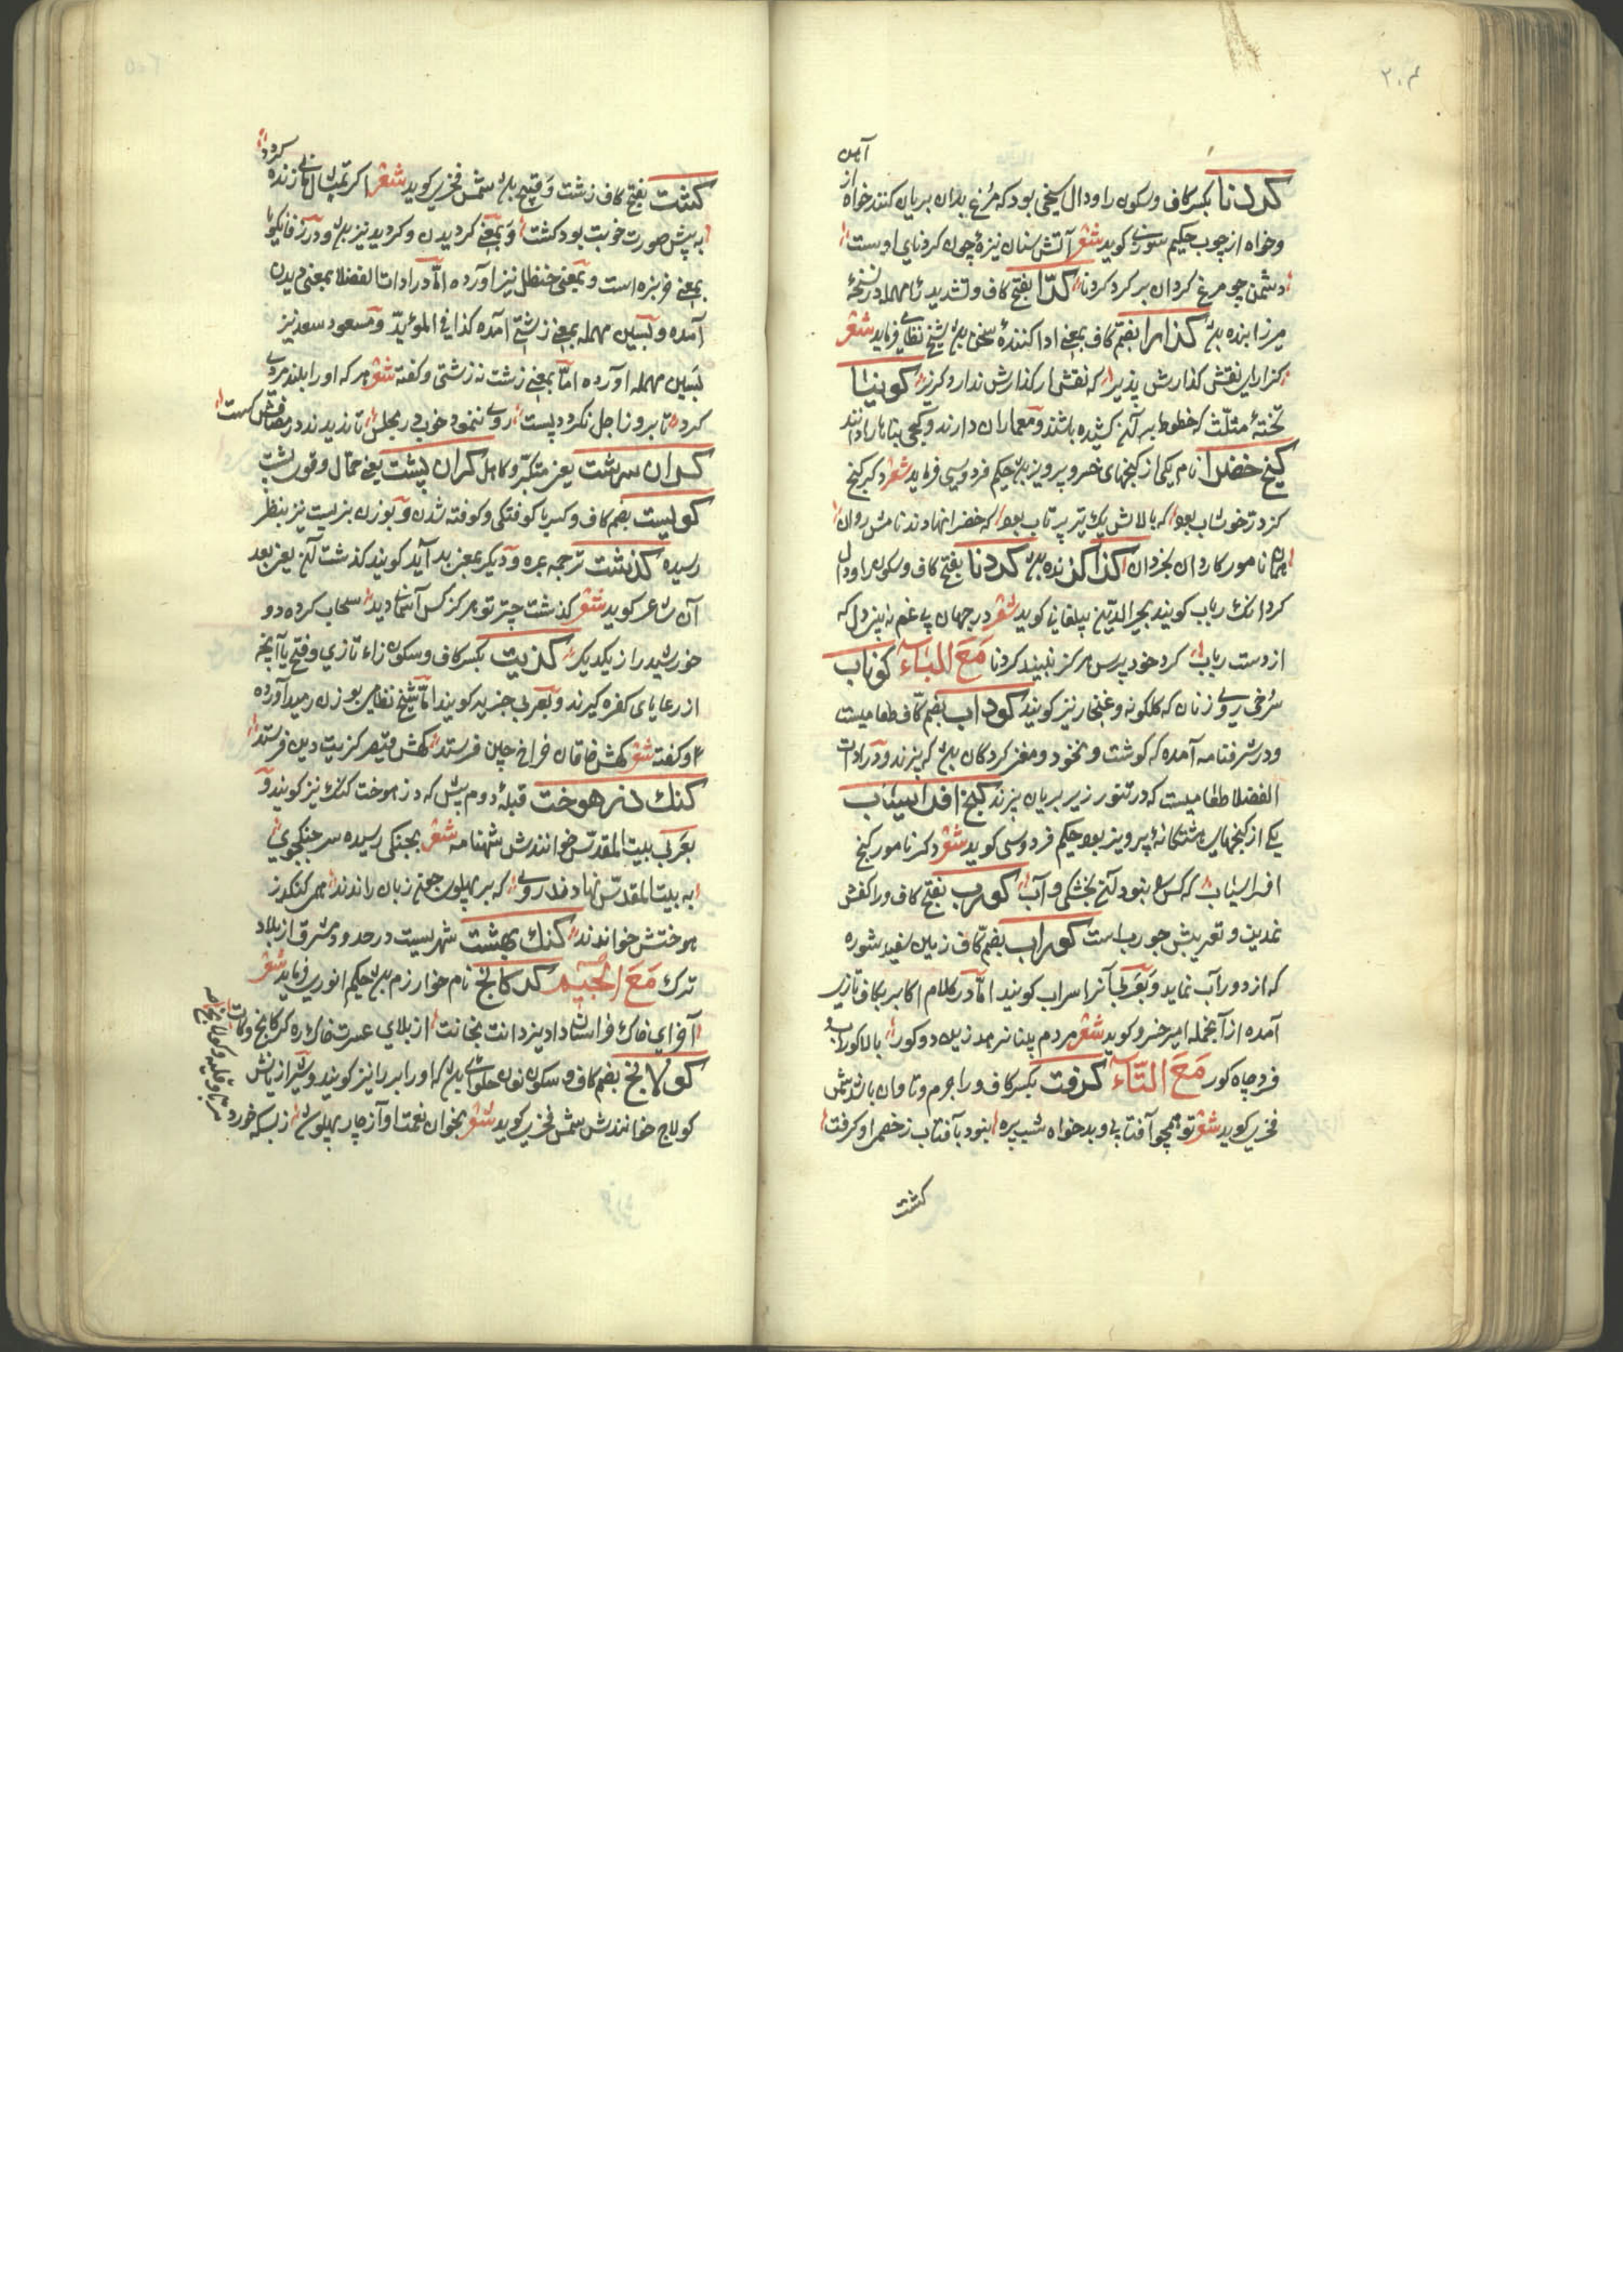 ۲۰۴
آهن
کردنا بکسر کاف و سکون را و دال سیخی بود که مرغ بدان بریان کنند خواه از
و خواه از چوب حکیم سوزنی کوید شعر آتش سنان نیزهٔ چون کردنای اوست
دشمن چو مرغ کردان بر کرد کردنا کرا بفتح کاف و تشدید را مهمله در نسخهٔ
میرزا بنده بود کذارا بضم کاف بمعنی ادا کنندهٔ سخن بود شیخ نظامی فرماید شعر
کزارای نقش کذارش پذیر که نقش از کذارش ندارد کزیر کونیا
تختهٔ مثلث که خطوط بر آن کشیده باشند و معماران دارند و کجی بناها را دانند
کنج خضرا نام یکی از کنجهای خسرو پرویز بود حکیم فردوسی فرماید شعر دکر کنج
کز در خوشاب بود که بالاش یک تیر پرتاب بود که خضرا نهادند نامش روان
همان نامور کاردان بخردان کذا کزنده بود کردنا بفتح کاف و سکون را و دال
کردانک رباب کویند مجیر الدین بیلقانی کوید شعر در جهان بی غم نه بیند دل که
از دست رباب کرد خود پرس هرکز نبیند کردنا مع الباء کوناب
سرخی روی زنان که کلکونه و غنجار نیز کویند کوداب بضم کاف طعامیست
و در شرفنامه آمده که کوشت و نخود و مغز کردکان بود که پزند و در ادات
الفضلا طعامیست که در تنور زیر بریان پزند کنج افراسیاب
یکی از کنجهای هشتکانهٔ پرویز بود حکیم فردوسی کوید شعر دکر نامور کنج
افراسیاب که کس را نبود آن بخشکی و آب کورب بفتح کاف و را کفش
نمدین و تعریبش جورب است کوراب بضم کاف زمین سفید شوره
که از دور آب نماید و بعربی آنرا سراب کویند اما در کلام اکابر بکاف تازی
آمده از آنجمله امیر خسرو کوید شعر مردم بینا نرمد زین دو کور بالا کوراب و
فرو چاه کور مع التاء کرفت بکسر کاف و را جرم و تاوان باشد شمس
فخری کوید شعر تو همچو آفتابی و بدخواه شب پره نبود بآفتاب ز خصم او کرفت
کشت
کشت بفتح کاف زشت و قبیح بود شمس فخری کوید شعر اکر تمثال مانی زنده کردد
به پیش صورت خوبت بود کشت و بمعنی کردیدن و کردید نیز بود و در زفان کویا
بمعنی خربزه است و بمعنی حنظل نیز آورده اما در ادات الفضلا بمعنی دیدن
آمده و بسین مهمله بمعنی زشتی آمده کذا فی الموید و مسعود سعد نیز
بسین مهمله آورده اما بمعنی زشت نه زشتی و کفته شعر هرکه او را بلند مردی
کرد تا بروز اجل نکردد پست روی ننمود خوب در مجلس تا ندیدند در مصافش کست
کران سرشت یعنی متکبر و کاهل کران پشت یعنی حمال و قوی پشت
کولیست بضم کاف و کسر یا کوفتکی و کوفته شدن و بوزن بنریست نیز بنظر
رسیده کذشت ترجمه عبره و دیکر بمعنی بد آید کویند کذشت آن یعنی بعد
آن شاعر کوید شعر کذشت چتر تو هرکز کس آسمان دید سحاب کرده دو
خورشید را ز یکدیکر کزیت بکسر کاف و سکون زاء تازی و فتح یا آنچه
از رعایای کفره کیرند و بعربی جزیه کویند اما شیخ نظامی بوزن رمید آورده
و کفته شعر کهش خاقان خراج چین فرستد کهش قیصر کزیت دین فرستد
کنک دژ هوخت قبلهٔ دوم پیش که دز هوخت کنک نیز کویند و
بعربی بیت المقدس خوانندش شهنامه شعر بجنکی رسیده سر جنکجوی
به بیت المقدس نهادند روی که بر پهلوی چون زبان راندند همی کنکدز
هوختش خواندند کنک بهشت شهریست در حدود مشرق از بلاد
ترک مع الجیم کرکانج نام خوارزم بود حکیم انوری فرماید شعر
آخر ای خاک خراسان داد یزدانت نجات از بلای غیرت خاک ره کرکانج و کات
کولانج بضم کاف و سکون نون حلوای بود که او را بر را نیز کویند و شیرازیانش
کولاج خوانندش شمس فخری کوید شعر بخوان نعمت او آز چار پهلو شد ز بسکه خورد